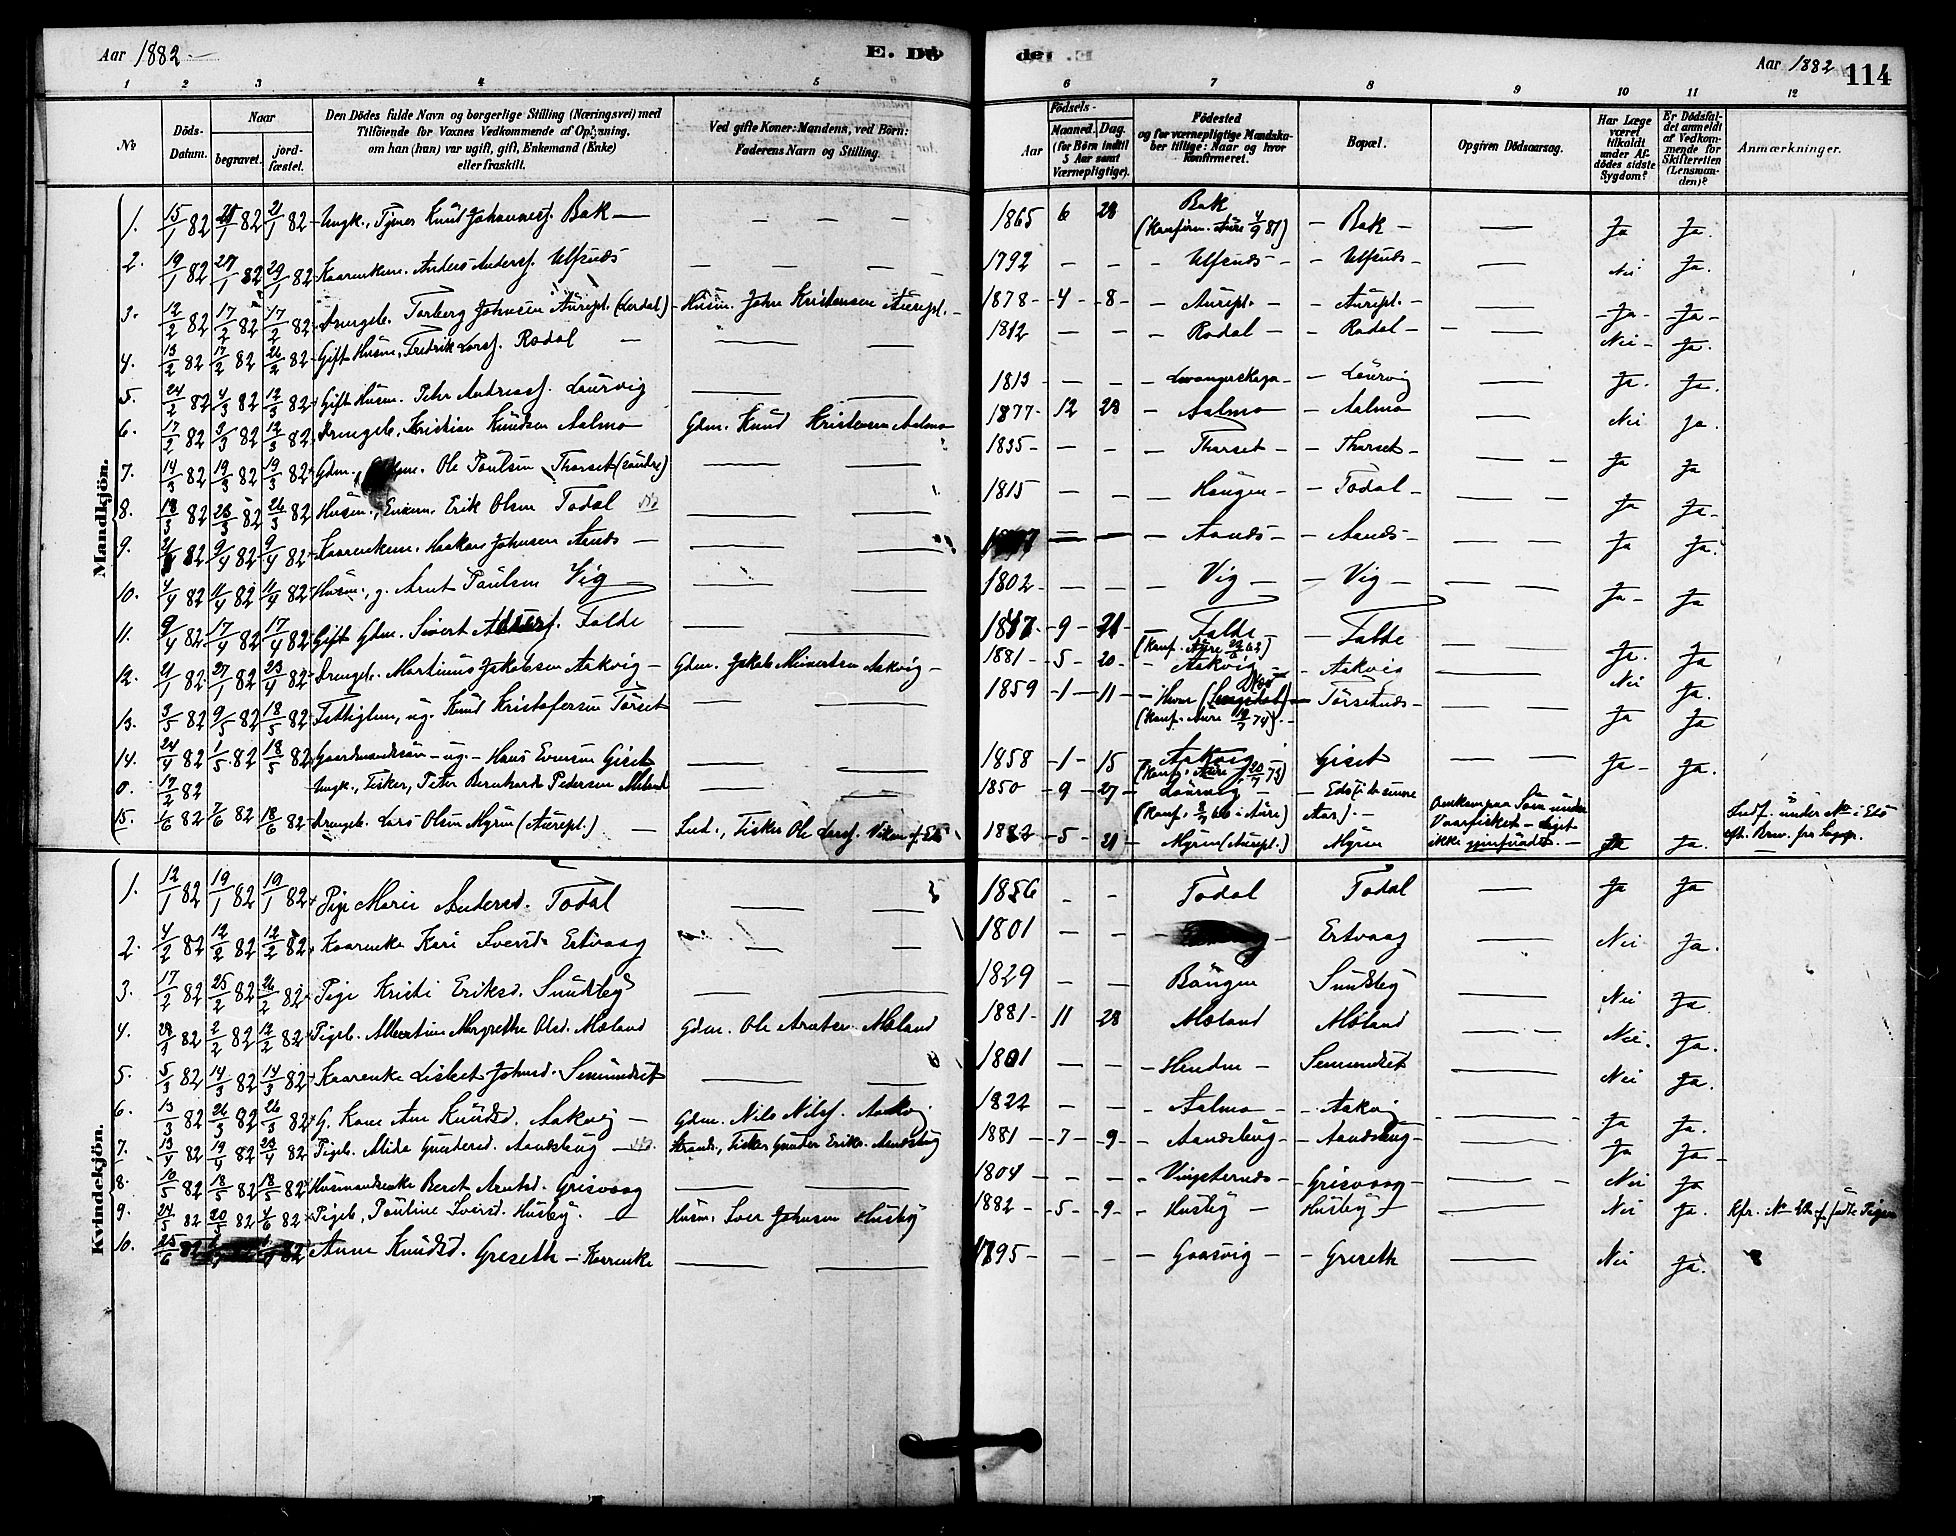 Aar 1882
E. Dö
de E.
Aar 1882
114
1 2 3 4 5 6 7 8 9 10 11 12
No
Döds-Datum.
Naar
begravet.
jord-fæstet.
Den Dödes fulde Navn og borgerlige Stilling (Næringsvei) med
Tilföiende for Voxnes Vedkommende af Oplysning,
om han (hun) var ugift, gift, Enkemand (Enke)
eller fraskilt.
Ved gifte Koner: Mandens, ved Börn:
Faderens Navn og Stilling.
Födsels-
Aar
Maaned. Dag.
(for Börn indtil
5 Aar samt
Værnepligtige).
Födested
og for værnepligtige Mandska-
ber tillige: Naar og hvor
konfirmeret.
Bopæl.
Opgiven Dödsaarsag.
Har Læge
været
tilkaldt
under Af-
dödes sidste
Sygdom?
Er Dödsfal-
det anmeldt
af Vedkom-
mende for
Skifteretten
(Lensman-
den)?
Anmærkninger.
Mandkjön.
1. 15/1 82 21/1 82 21/1 82 Ungk., Knud Johannesf. Bak — 1865 6 28 Bak (Konfirm. Aure 4/9 81) Bak — Ja Ja
2. 19/1 82 29/1 82 29/1 82 Kaarenkem. Anders Andersf. Ulfsnæs 1792 — — Ulfsnæs Ulfsnæs — Nei Ja
3. 12/2 82 17/2 82 17/2 82 Drengeb. Torberg Johnsen Aurepl. (Lerdal) Husm. John Kristensen Aurepl. 1878 4 8 Aurepl. Aurepl. — Ja Ja
4. 13/2 82 17/2 82 26/2 82 Gift Husm. Fredrik Larsf. Rodal 1812 — — Rodal Rodal — Nei Ja
5. 24/2 82 4/3 82 12/3 82 Gift Husm. Peter Andreasf. Laurvig 1813 — — Laurvig — Ja Ja
6. 17/2 82 3/3 82 12/3 82 Drengeb. Kristian Knudsen Aalmo Gdm. Knud Kristensen Aalmo 1877 12 28 Aalmo Aalmo — Nei Ja
7. 14/3 82 19/3 82 19/3 82 Gdm., Ole Paulsen Thorset (söndre) 1835 — — Thorset Thorset — Ja Ja
8. 18/3 82 23/3 82 26/3 82 Husm., Enkem. Erik Olsen Todal 1815 — — Haugen Todal — Ja Ja
9. 82 9/4 82 9/4 82 Kaarenkem. Haakon Johnsen Aands — — Aands Aands — Ja Ja
10. 4/4 82 11/4 82 11/4 82 Husm., g. Arnt Paulsen Vig 1802 — — Vig Vig — Ja Ja
11. 9/4 82 17/4 82 17/4 82 Gift Gdm. Sivert Falde 1847 9 21 Falde (Konf. Aure 63) Falde — Ja Ja
12. 21/1 82 27/1 82 23/4 82 Drengeb. Martinus Jakobsen Aakvig Gdm. Jakob Meinertsen Aakvig 1881 5 20 Aakvig Aakvig — Nei Ja
13. 3/5 82 9/5 82 18/5 82 Fattiglem, ug. Knud Kristofersen Torset 1859 1 11 Hevne (Konf. Aure 74) Torsetnæs — Ja Ja
14. 24/4 82 1/5 82 18/5 82 Gaardmandssön — ug. — Hans Evensen Giset 1858 1 15 Aakvig (Konf. Aure 73) Giset — Ja Ja
0. 17/2 82 Ungk., Fisker, Peter Bernhard Pedersen 1850 9 27 Laurvig (Konf. 66 i Aure) Edö (i de senere Aar). Omkom paa Söen under Vaarfisket — Liget ikke gjenfundet.
15. 1/6 82 7/6 82 18/6 82 Drengeb. Lars Olsen Myren (Aurepl.) Fisker Ole Larsf. 1882 5 21 Myren (Aurepl.) Myren Ja Ja
Kvindekjön.
1. 12/1 82 19/1 82 19/1 82 Pige Marie Andersd. Todal 1856 — — Todal Todal — Ja Ja
2. 4/2 82 12/2 82 12/2 82 Kaarenke Kari Iversd. Ertvaag 1801 — — Ertvaag — Nei Ja
3. 17/2 82 25/2 82 26/2 82 Pige Kristi Eriksd. Sundsby 1829 — — Sundsby — Nei Ja
4. 82 2/2 82 12/2 82 Pigeb. Albertine Margrethe Olsd. Mæland Gdm. Ole Arntsen Mæland 1881 11 28 Mæland Mæland — Nei Ja
5. 5/3 82 14/3 82 14/3 82 Kaarenke Lisbet Johnsd. Semundset 1801 — — Semundset — Nei Ja
6. 13/3 82 26/3 82 26/3 82 G. Kone Ane Knudsd. Aakvig Gdm. Nils Nilsf. Aakvig 1822 — — Aalmo Aakvig — Ja Ja
7. 13/4 82 19/4 82 23/4 82 Pigeb. Alida Gundersd. Aandsbug Strands., Fisker Gunder Eriks. Aandsbug 1881 7 9 Aandsbug Aandsbug — Ja Ja
8. 10/5 82 18/5 82 18/5 82 Husmandsenke Beret Arntsd. Grisvaag 1804 — — Vingsternæs Grisvaag — Nei Ja
9. 24/5 82 82 4/6 82 Pigeb. Pauline Iversd. Husby. Husm. Iver Johnsen Husby 1882 5 9 Husby Husby — Nei Ja Kfr. No 22 f. födte Piger
10. 25/6 82 82 Anne Knudsd. Greseth — Kaarenke 1795 — — Gaasvig Greseth — Nei Ja